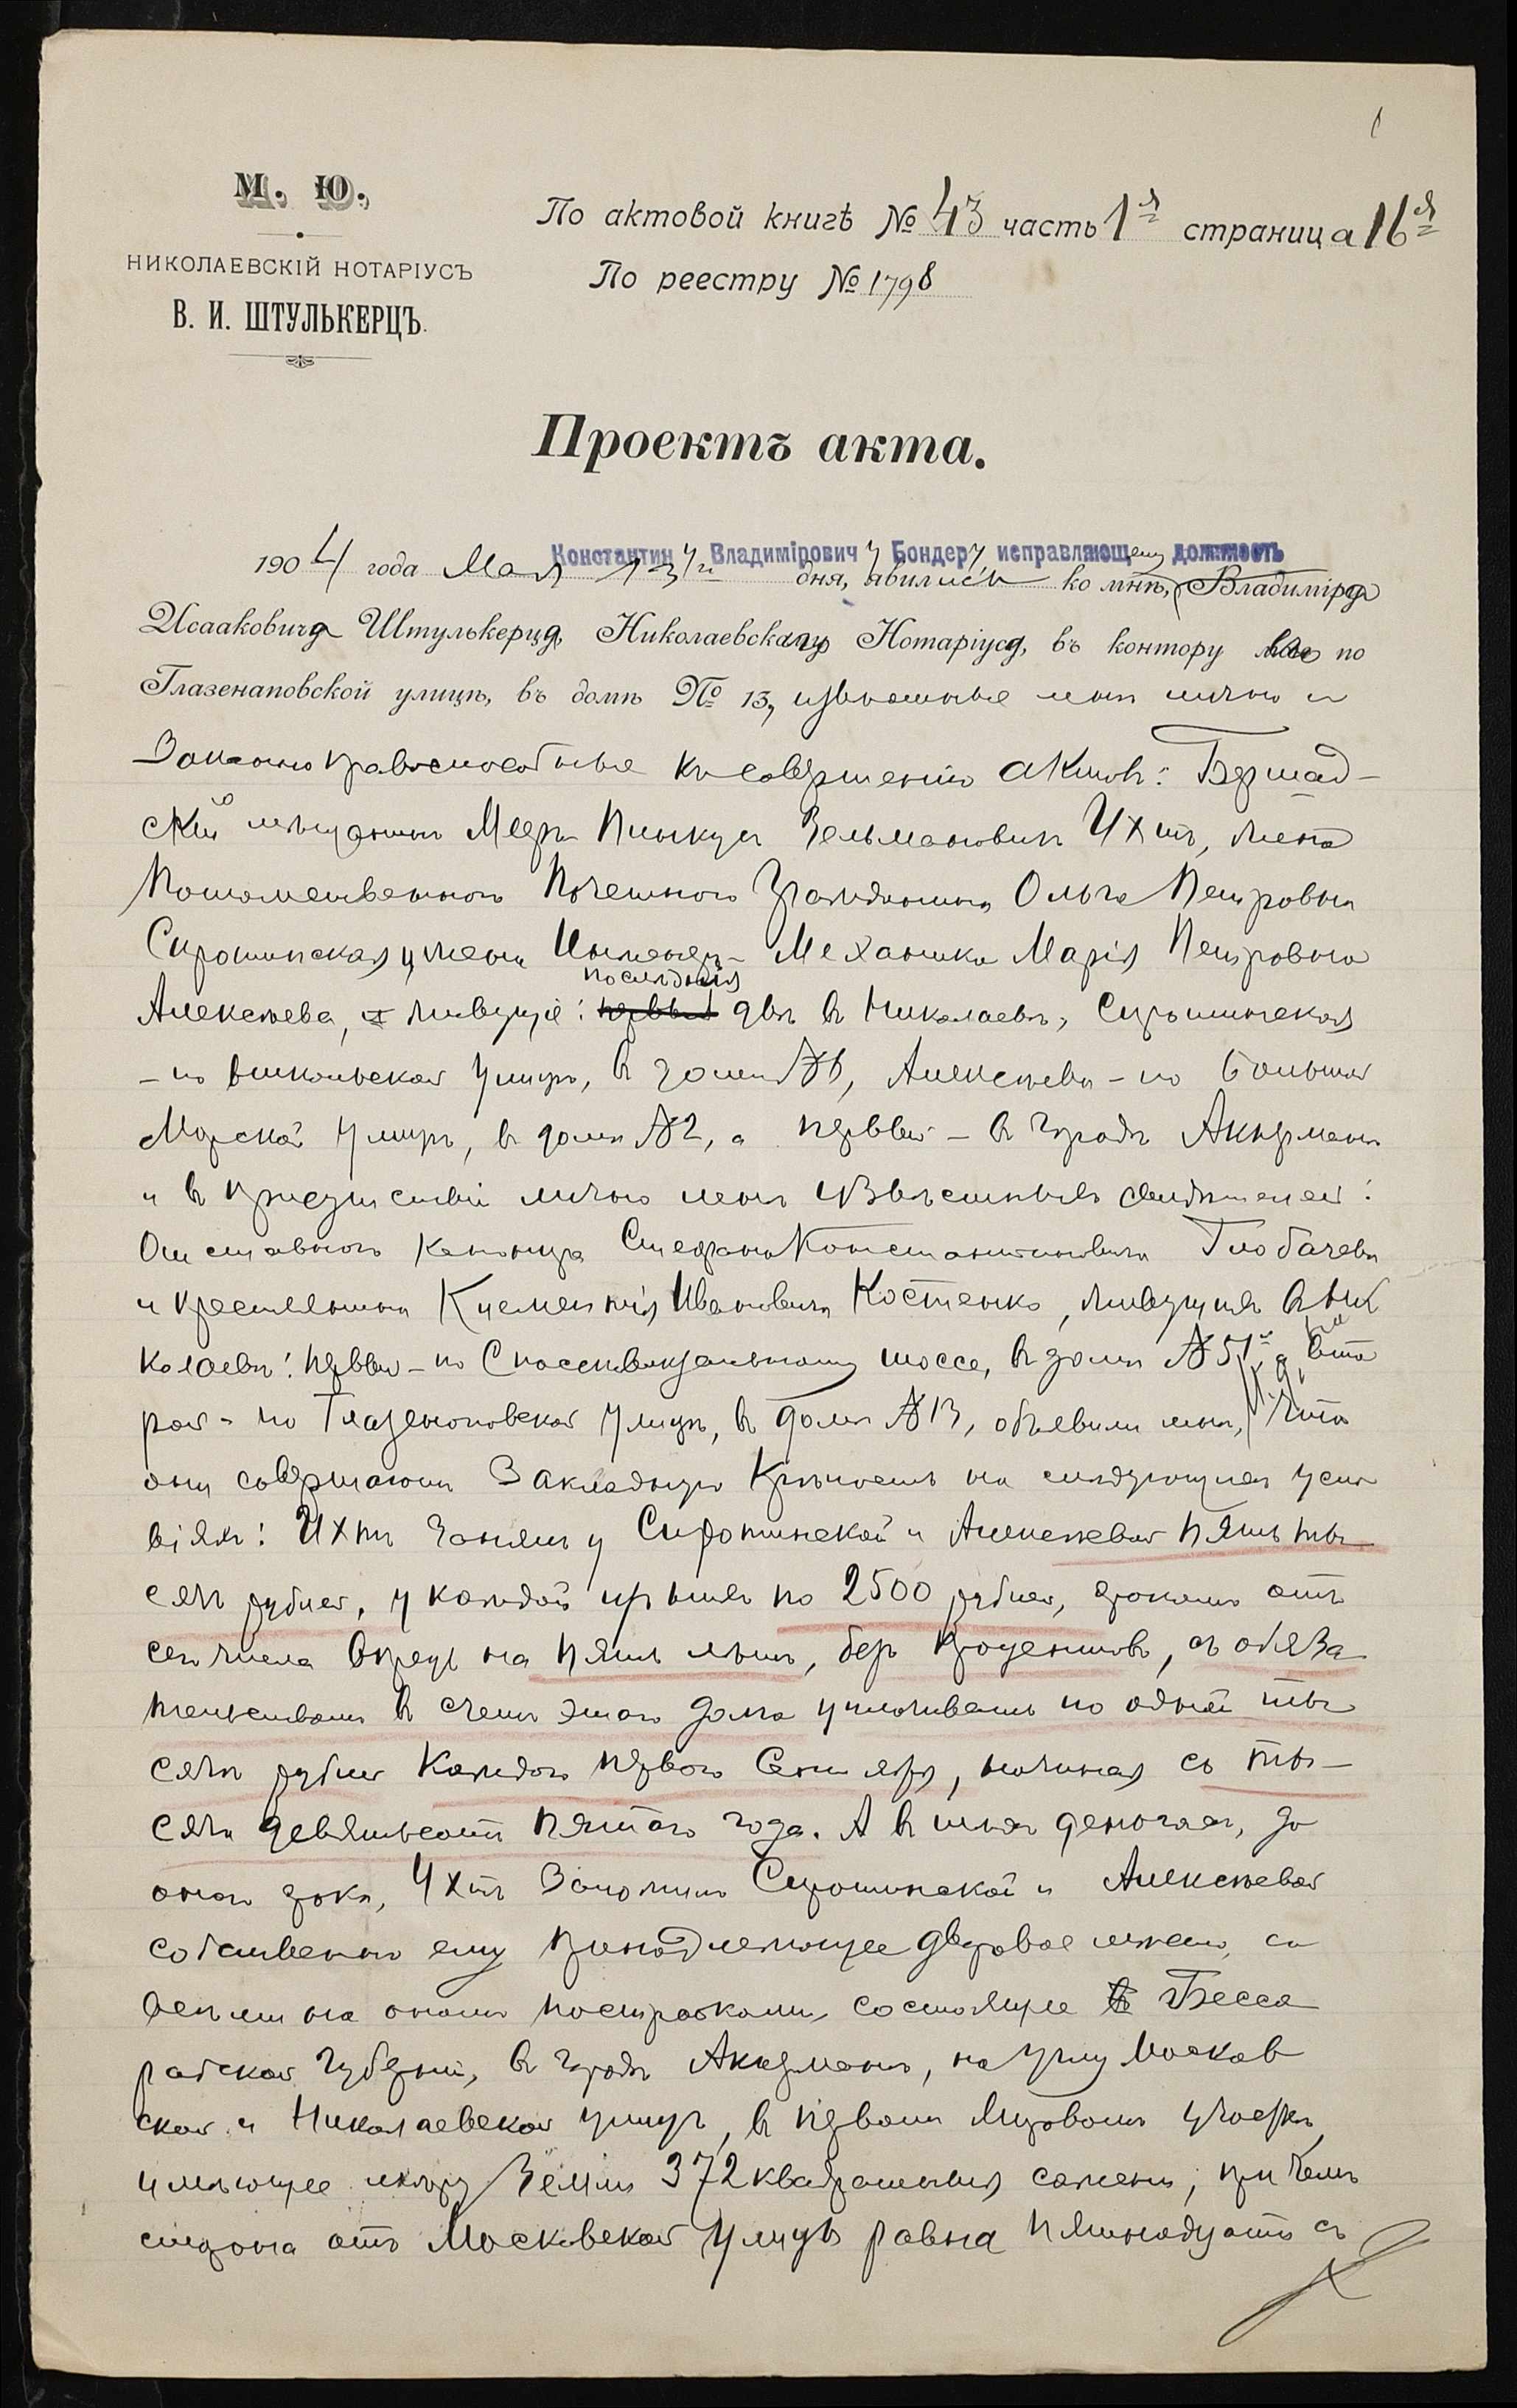 М. Ю.
НИКОЛАЕВСКІЙ НОТАРІУСЪ
В. И. ШТУЛЬКЕРЦЪ.
По актовой книгѣ № 43 часть 1я страница 16я
По реестру № 1798
Проектъ акта.
Константину Владиміровичу Бондеру, исправляющему должность
1904 года Мая 13го дня, явились ко мнѣ, Владиміра
Исааковича Штулькерца, Николаевскаго Нотаріуса, въ контору его по
Глазенаповской улицѣ, въ домѣ № 13, извѣстные мнѣ лично и
Законно правоспособные къ совершенію актовъ: Бершад-
скій мѣщанинъ Мееръ Пинкусъ Зельмановичъ Ихтъ, жена
Потомственнаго Почетнаго Гражданина Ольга Петровна
Сиротинская и жена Инженеръ-Механика Марія Петровна
послѣднія
Алексѣева, живущіе: первый двѣ въ Николаевѣ, Сиротинская
- по Никольской улицѣ, въ домѣ №, Алексѣева - по Большой
Морской улицѣ, въ домѣ № 2, а первый - въ городѣ Аккерманѣ
и въ присутствіи лично мнѣ извѣстныхъ свидѣтелей:
Отставного Стефана Константиновича Глобачева
и крестьянина Климентія Ивановича Костенко, живущихъ въ Ни
колаевѣ: первый - по шоссе, въ домѣ № 51, а вто
рой - по Глазенаповской улицѣ, въ домѣ № 13, объявили мнѣ, что
они совершаютъ Закладную Крѣпость на слѣдующихъ усло
віяхъ: Ихтъ занялъ у Сиротинской и Алексѣевой пять ты
сячъ рублей, у каждой изъ нихъ по 2500 рублей, срокомъ отъ
сего числа впредь на пять лѣтъ, безъ процентовъ, съ обяза
тельствомъ въ счетъ этого долга уплачивать по одной ты
сячѣ рублей каждаго перваго Сентября, начиная съ ты-
сяча девятьсотъ пятаго года. А въ тѣхъ деньгахъ, до
онаго срока, Ихтъ Заложилъ Сиротинской и Алексѣевой
собственно ему принадлежащее дворовое мѣсто, со
всѣми на ономъ постройками, состоящее въ Бесса
рабской губерніи, въ городѣ Аккерманѣ, на углу Москов
ской и Николаевской улицъ, въ первомъ Мировомъ участкѣ,
имѣющее мѣрою Земли 372 квадратныхъ сажени, при чемъ
сторона отъ Московской улицы равна пятнадцати съ